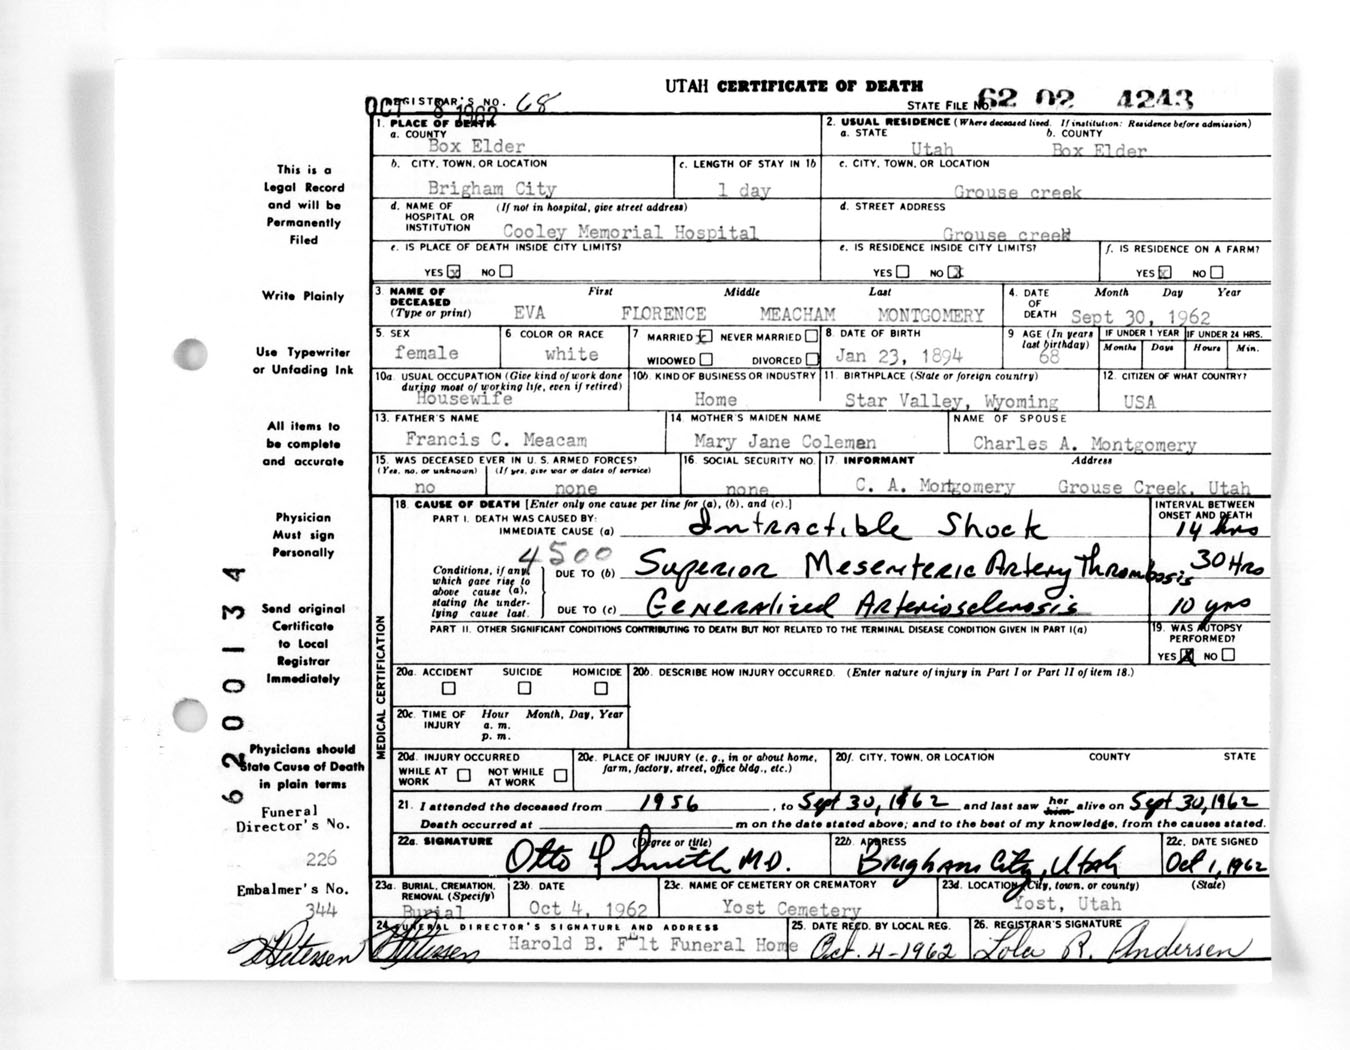 UTAH CERTIFICATE OF DEATH
OCT 8 1962
REGISTRAR'S NO. 68
STATE FILE NO. 62 02 4243
1. PLACE OF DEATH
a. COUNTY
Box Elder
2. USUAL RESIDENCE (Where deceased lived. If institution: Residence before admission)
a. STATE b. COUNTY
Utah Box Elder
This is a
Legal Record
and will be
Permanently
Filed
b. CITY, TOWN, OR LOCATION
Brigham City
c. LENGTH OF STAY IN 1b
1 day
c. CITY, TOWN, OR LOCATION
Grouse creek
d. NAME OF (If not in hospital, give street address)
HOSPITAL OR
INSTITUTION
Cooley Memorial Hospital
d. STREET ADDRESS
Grouse creek
e. IS PLACE OF DEATH INSIDE CITY LIMITS?
YES x NO
e. IS RESIDENCE INSIDE CITY LIMITS?
YES NO x
f. IS RESIDENCE ON A FARM?
YES x NO
Write Plainly
3. NAME OF First Middle Last
DECEASED
(Type or print)
EVA FLORENCE MEACHAM MONTGOMERY
4. DATE Month Day Year
OF
DEATH Sept 30, 1962
Use Typewriter
or Unfading Ink
5. SEX
female
6 COLOR OR RACE
white
7 MARRIED x NEVER MARRIED
WIDOWED DIVORCED
8. DATE OF BIRTH
Jan 23, 1894
9 AGE (In years
last birthday)
68
IF UNDER 1 YEAR IF UNDER 24 HRS.
Months Days Hours Min.
10a. USUAL OCCUPATION (Give kind of work done
during most of working life, even if retired)
Housewife
10b. KIND OF BUSINESS OR INDUSTRY
Home
11. BIRTHPLACE (State or foreign country)
Star Valley, Wyoming
12. CITIZEN OF WHAT COUNTRY?
USA
All items to
be complete
and accurate
13. FATHER'S NAME
Francis C. Meacam
14 MOTHER'S MAIDEN NAME
Mary Jane Coleman
NAME OF SPOUSE
Charles A. Montgomery
15. WAS DECEASED EVER IN U. S. ARMED FORCES?
(Yes, no, or unknown) (If yes, give war or dates of service)
no none
16 SOCIAL SECURITY NO.
none
17 INFORMANT Address
C. A. Montgomery Grouse Creek, Utah
Physician
Must sign
Personally
MEDICAL CERTIFICATION
18. CAUSE OF DEATH [Enter only one cause per line for (a), (b), and (c).]
PART I. DEATH WAS CAUSED BY:
IMMEDIATE CAUSE (a) Intractible Shock
INTERVAL BETWEEN
ONSET AND DEATH
14 hrs
4500
Conditions, if any,
which gave rise to
above cause (a),
stating the under-
lying cause last.
DUE TO (b) Superior Mesenteric Artery Thrombosis 30 Hrs
DUE TO (c) Generalized Arteriosclerosis 10 yrs
Send original
Certificate
to Local
Registrar
Immediately
6200134
PART II. OTHER SIGNIFICANT CONDITIONS CONTRIBUTING TO DEATH BUT NOT RELATED TO THE TERMINAL DISEASE CONDITION GIVEN IN PART I(a)
19. WAS AUTOPSY
PERFORMED?
YES X NO
20a. ACCIDENT SUICIDE HOMICIDE
20b. DESCRIBE HOW INJURY OCCURRED. (Enter nature of injury in Part I or Part II of item 18.)
20c. TIME OF Hour Month, Day, Year
INJURY a. m.
p. m.
Physicians should
State Cause of Death
in plain terms
20d. INJURY OCCURRED
WHILE AT NOT WHILE
WORK AT WORK
20e. PLACE OF INJURY (e. g., in or about home,
farm, factory, street, office bldg., etc.)
20f. CITY, TOWN, OR LOCATION COUNTY STATE
21. I attended the deceased from 1956, to Sept 30, 1962 and last saw her him alive on Sept 30, 1962
Death occurred at m on the date stated above; and to the best of my knowledge, from the causes stated.
Funeral
Director's No.
226
22a. SIGNATURE (Degree or title)
Otto F Smith M.D.
22b. ADDRESS
Brigham City, Utah
22c. DATE SIGNED
Oct 1, 1962
Embalmer's No.
344
23a. BURIAL, CREMATION,
REMOVAL (Specify)
Burial
23b. DATE
Oct 4, 1962
23c. NAME OF CEMETERY OR CREMATORY
Yost Cemetery
23d. LOCATION (City, town, or county) (State)
Yost, Utah
24. FUNERAL DIRECTOR'S SIGNATURE AND ADDRESS
Harold B. Felt Funeral Home
25. DATE REC'D. BY LOCAL REG.
Oct. 4-1962
26. REGISTRAR'S SIGNATURE
Lola R. Andersen